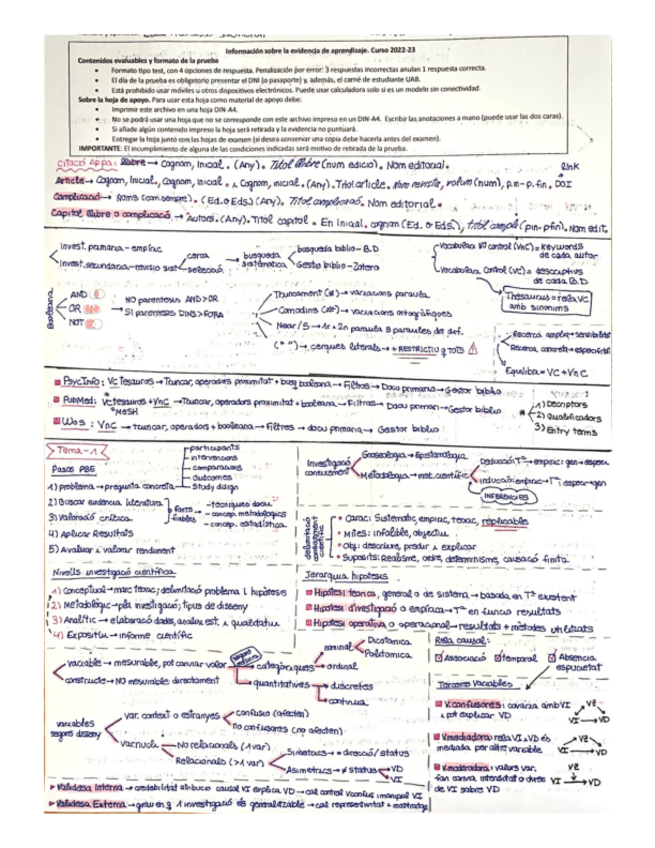 Información sobre la evidencia de aprendizaje. Curso 2022-23
Contenidos evaluables y formato de la prueba
• Formato tipo test, con 4 opciones de respuesta. Penalización por error: 3 respuestas incorrectas anulan 1 respuesta correcta.
• El día de la prueba es obligatorio presentar el DNI (o pasaporte) y, además, el carné de estudiante UAB.
• Está prohibido usar móviles u otros dispositivos electrónicos. Puede usar calculadora solo si es un modelo sin conectividad.
Sobre la hoja de apoyo. Para usar esta hoja como material de apoyo debe:
• Imprimir este archivo en una hoja DIN-A4.
• No se podrá usar una hoja que no se corresponde con este archivo impreso en un DIN-A4. Escribir las anotaciones a mano (puede usar las dos caras).
• Si añade algún contenido impreso la hoja será retirada y la evidencia no puntuará.
• Entregar la hoja junto con las hojas de examen (si desea conservar una copia debe hacerla antes del examen).
IMPORTANTE: El incumplimiento de alguna de las condiciones indicadas será motivo de retirada de la prueba.
Citació Appa: llibre → Cognom, Inicial. (Any). Títol llibre (num edició). Nom editorial. link
Article → Cognom, Inicial., Cognom, inicial. & Cognom, inicial. (Any). Títol article. Nom revista, volum (num), p.in - p.fin, DOI
Complicació → noms (com sempre). (Ed. o Eds.) (Any). Títol complicació. Nom editorial.
Capítol llibre o complicació → Autors. (Any). Títol capítol. En Inicial, cognom (Ed. o Eds.), títol compli (pin-pfin). Nom edit.
Invest. primaria - empíric
Invest. secundaria - revisio sist
cerca
selecció
busqueda sistemàtica
busqueda biblio - B.D
Gestio biblio - Zotero
Vocabulari NO control (VnC) = keywords de cada autor
Vocabulari control (VC) = descriptors de cada B.D
Thesaurus = rela VC amb sinonims
Booleans
AND
OR
NOT
NO parentesis AND > OR
SI parentesis DINS > FORA
Truncament (*) → variacions paraula
Comodins → variacions ortogràfiques
Near/5 → 1r i 2n paraula 5 paraules de dif.
(" ") → cerques literals → + RESTRICTIU q TOTS
Recerca amplia → sensibilitat
Recerca concreta → especificitat
Equilibri = VC + VnC
PsycInfo: VC Tesaurus → Truncar, operadors proximitat + busq booleana → Filtros → Docu primario → Gestor biblio
PubMed: VC tesaurus + VnC → Truncar, operadors proximitat + booleana → Filtros → Docu primari → Gestor biblio
MeSH
WoS: VnC → truncar, operadors + booleana → Filtros → docu primaria → Gestor biblio
1) Descriptors
2) Qualificadors
3) Entry terms
Tema - 1
Pasos PBE
participants
intervencions
comparacions
outcomes
Study disign
1) problema → pregunta concreta
2) Buscar evidencia literatura
3) Valoració crítica
4) Aplicar Resultats
5) Avaluar i valorar rendiment
fonts fiables
- tecniques docu
- concep. metodologics
- concep. estadística
Investigació coneixement
Gnoseologia → Epistemologia
Metodologia → mat. científic
Deducció: Tª → empiric: gen → espec
Inducció: empiric → Tª: espec → gen
INFERENCIES
delimitació coneixement científic
• Carac: Sistematic, empíric, teoric, replicable
• Mites: infalible, objectiu
• Obj: descriure, predir i explicar
• Suposits: Realisme, ordre, determinisme, causació finita
Nivells investigació científica
1) Conceptual → marc teoric; delimitació problema i hipotesis
2) Metodologic → pla investigació; tipus de disseny
3) Analític → elaboració dades, analisi est. i qualitatiu
4) Expositiu → informe científic
Jerarquia hipotesis
Hipotesi teorica, general o de sistema → basada en Tª existent
Hipotesi d'investigació o empírica → Tª en funcio resultats
Hipotesi operativa o operacional → resultats + metodes utilitzats
variable → mesurable, pot canviar valor
constructe → NO mesurable directament
categoriques
nominal
Dicotomica
Politomica
ordinal
quantitatives
discretes
continua
Rela causal:
Associació
temporal
Absencia espurietat
Tercera Variables
V. confusores: covaria amb VI i pot explicar VD
VZ
VI → VD
V. mediadora: rela VI i VD és mediada per altre variable
VZ
VI → VD
V. moderadora: valors var. fan canvia intensitat o direc de VI sobre VD
VZ
VI → VD
variables segons disseny
var. context o estranyes
confusio (afecten)
no confusores (no afecten)
Var nucli
No relacionals (1 var)
Relacionals (>1 var)
Simetrics → = direcció/status
Asimetrics → ≠ status
VD
VI
Validesa Interna → credibilitat atribucio causal VI explica VD → cal control Vconfus i manipul VI
Validesa Externa → grau en q 1 investigació és generalitzable → cal representivitat i mostratge